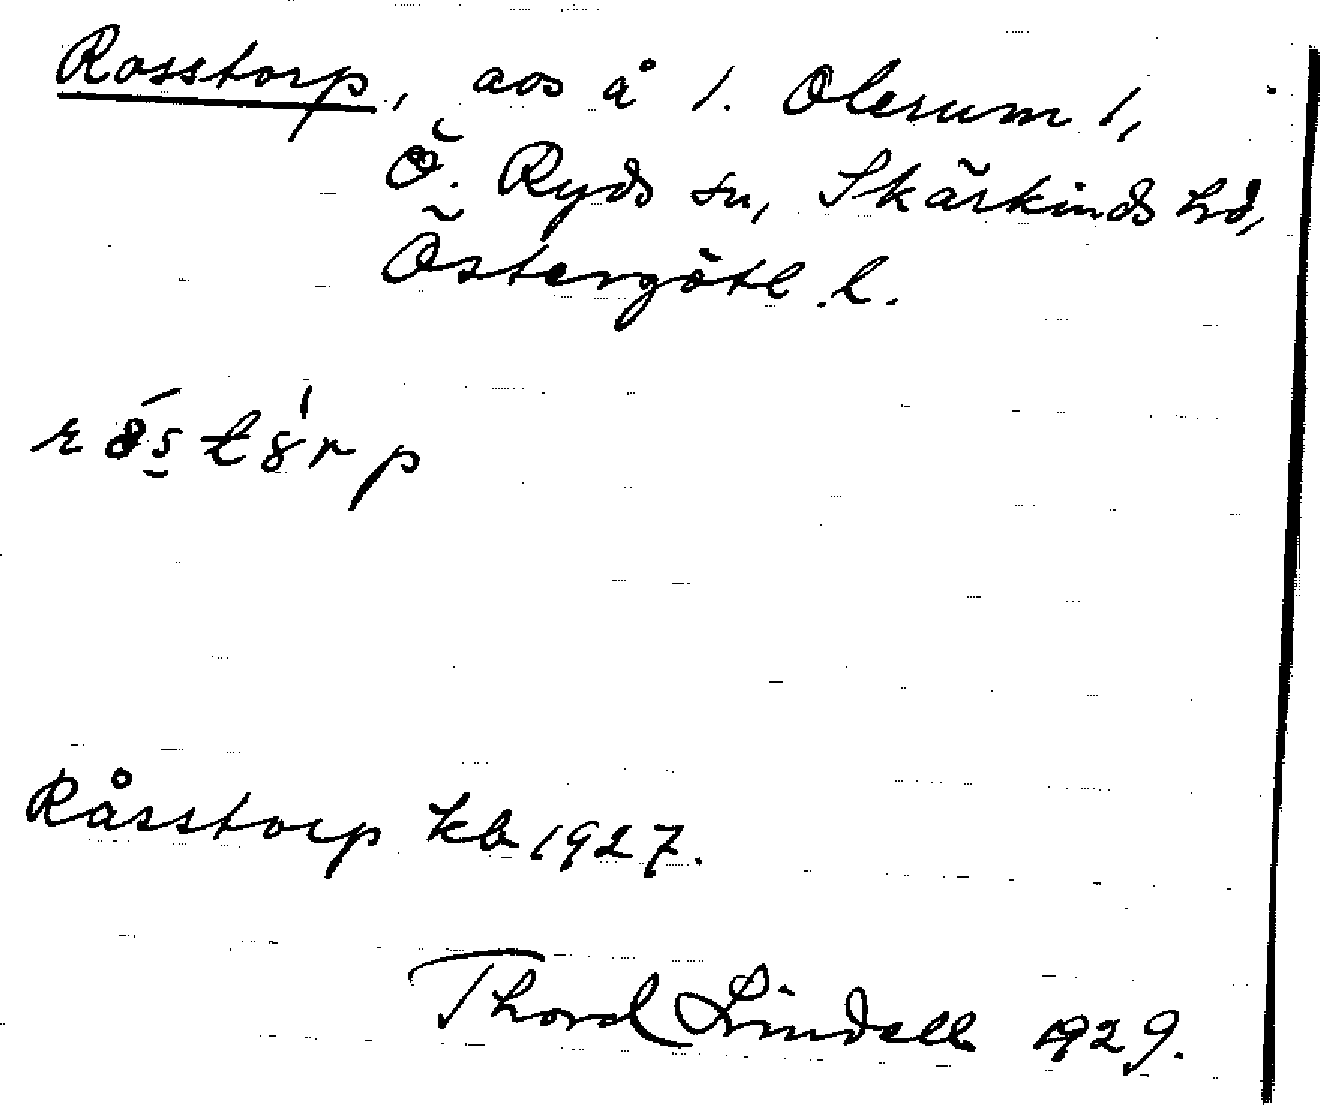 Rosstorp, aos å 1. Olerum 1,
Ö. Ryds sn, Skärkinds hd,
Östergötl. l.
Råsstorp kb 1927.
Thord Lindell 1929.